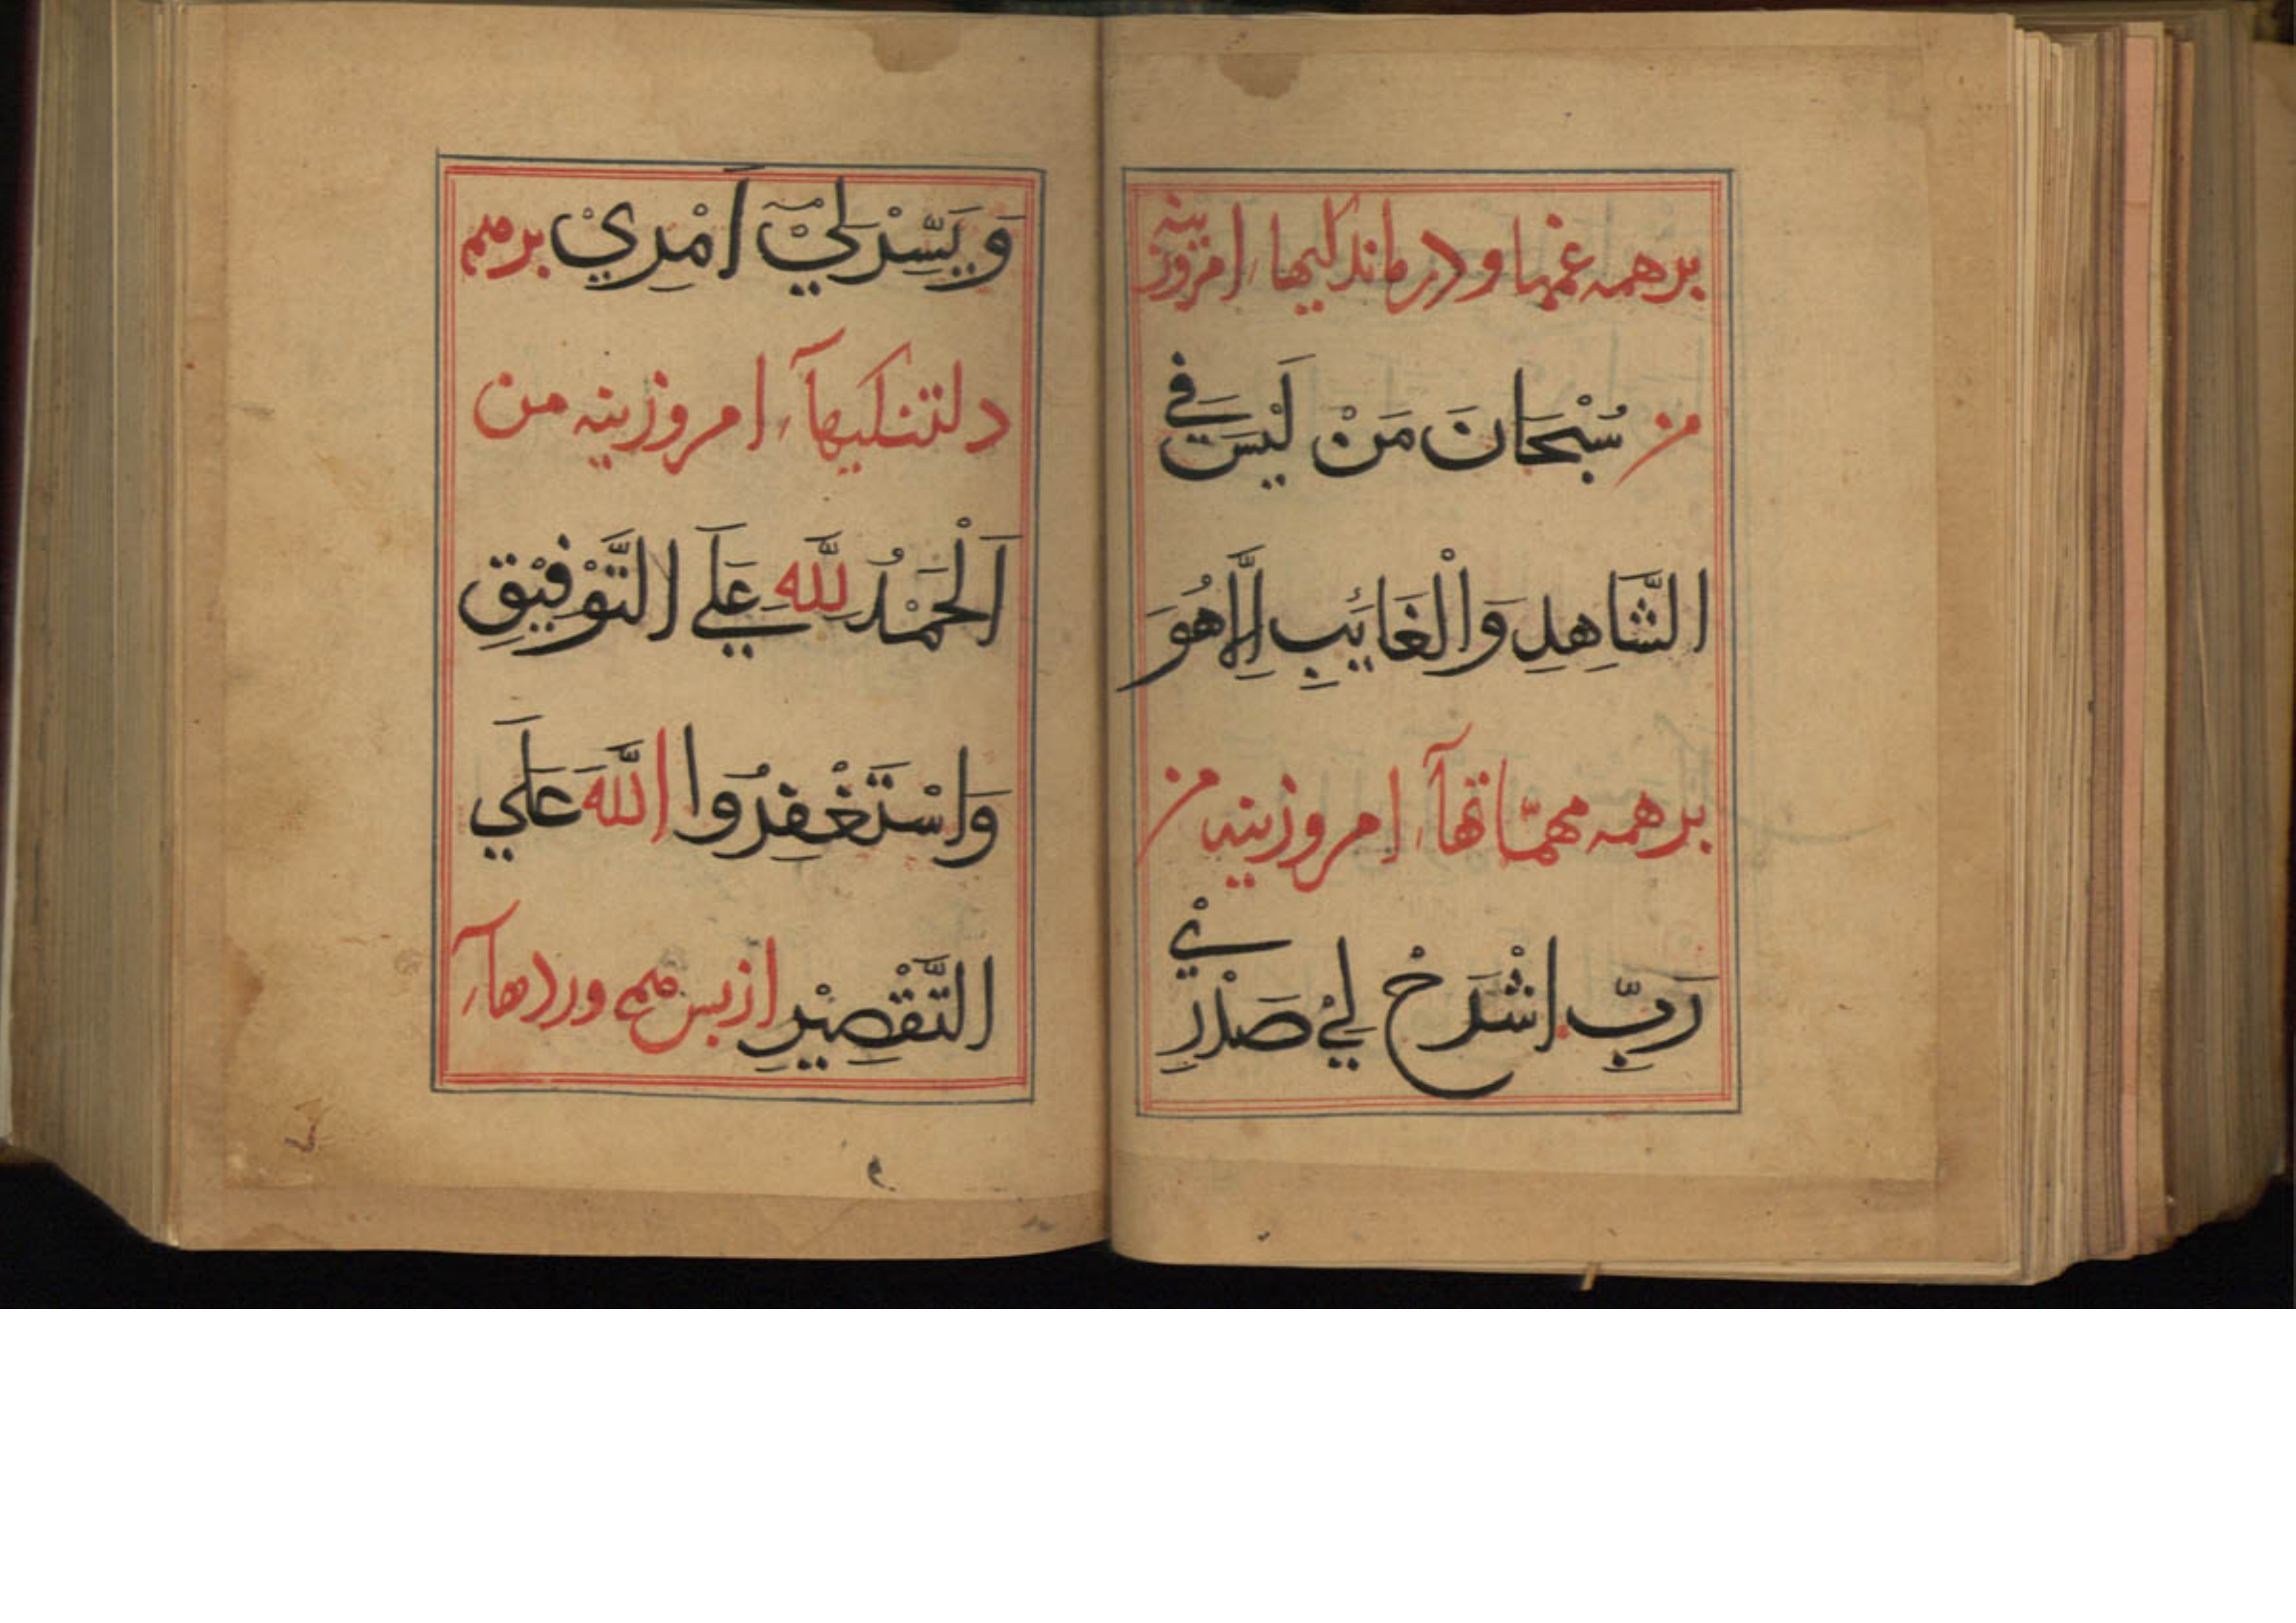 برهمه غمها و درماندکیها امروزینه
من سُبْحَانَ مَنْ لَيْسَ فِي
الشَّاهِدِ وَالْغَائِبِ اِلَّاهُوَ
برهمه مهمّاتهآ امروزینه من
رَبِّ اشْرَحْ لِيْ صَدْرِيْ
وَيَسِّرْلِيْٓ اَمْرِيْ برهمه
دلتنکیهآ امروزینه من
اَلْحَمْدُ لِلّٰهِ عَلَي التَّوْفِيْقِ
وَاسْتَغْفِرُوا اللّٰهَ عَلَي
التَّقْصِيْرِ ازپس همه وردهآ